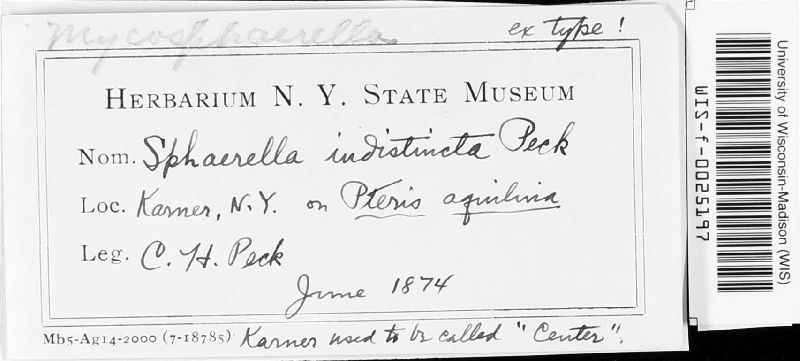 Mycosphaerella
ex type!
HERBARIUM N. Y. STATE MUSEUM
Nom. Sphaerella indistincta Peck
Loc. Karner, N.Y. on Pteris aquilina
Leg. C. H. Peck
June 1874
Mb5-Ag14-2000 (7-18785) Karner used to be called "Center".
University of Wisconsin-Madison (WIS)
WIS-f-0025197